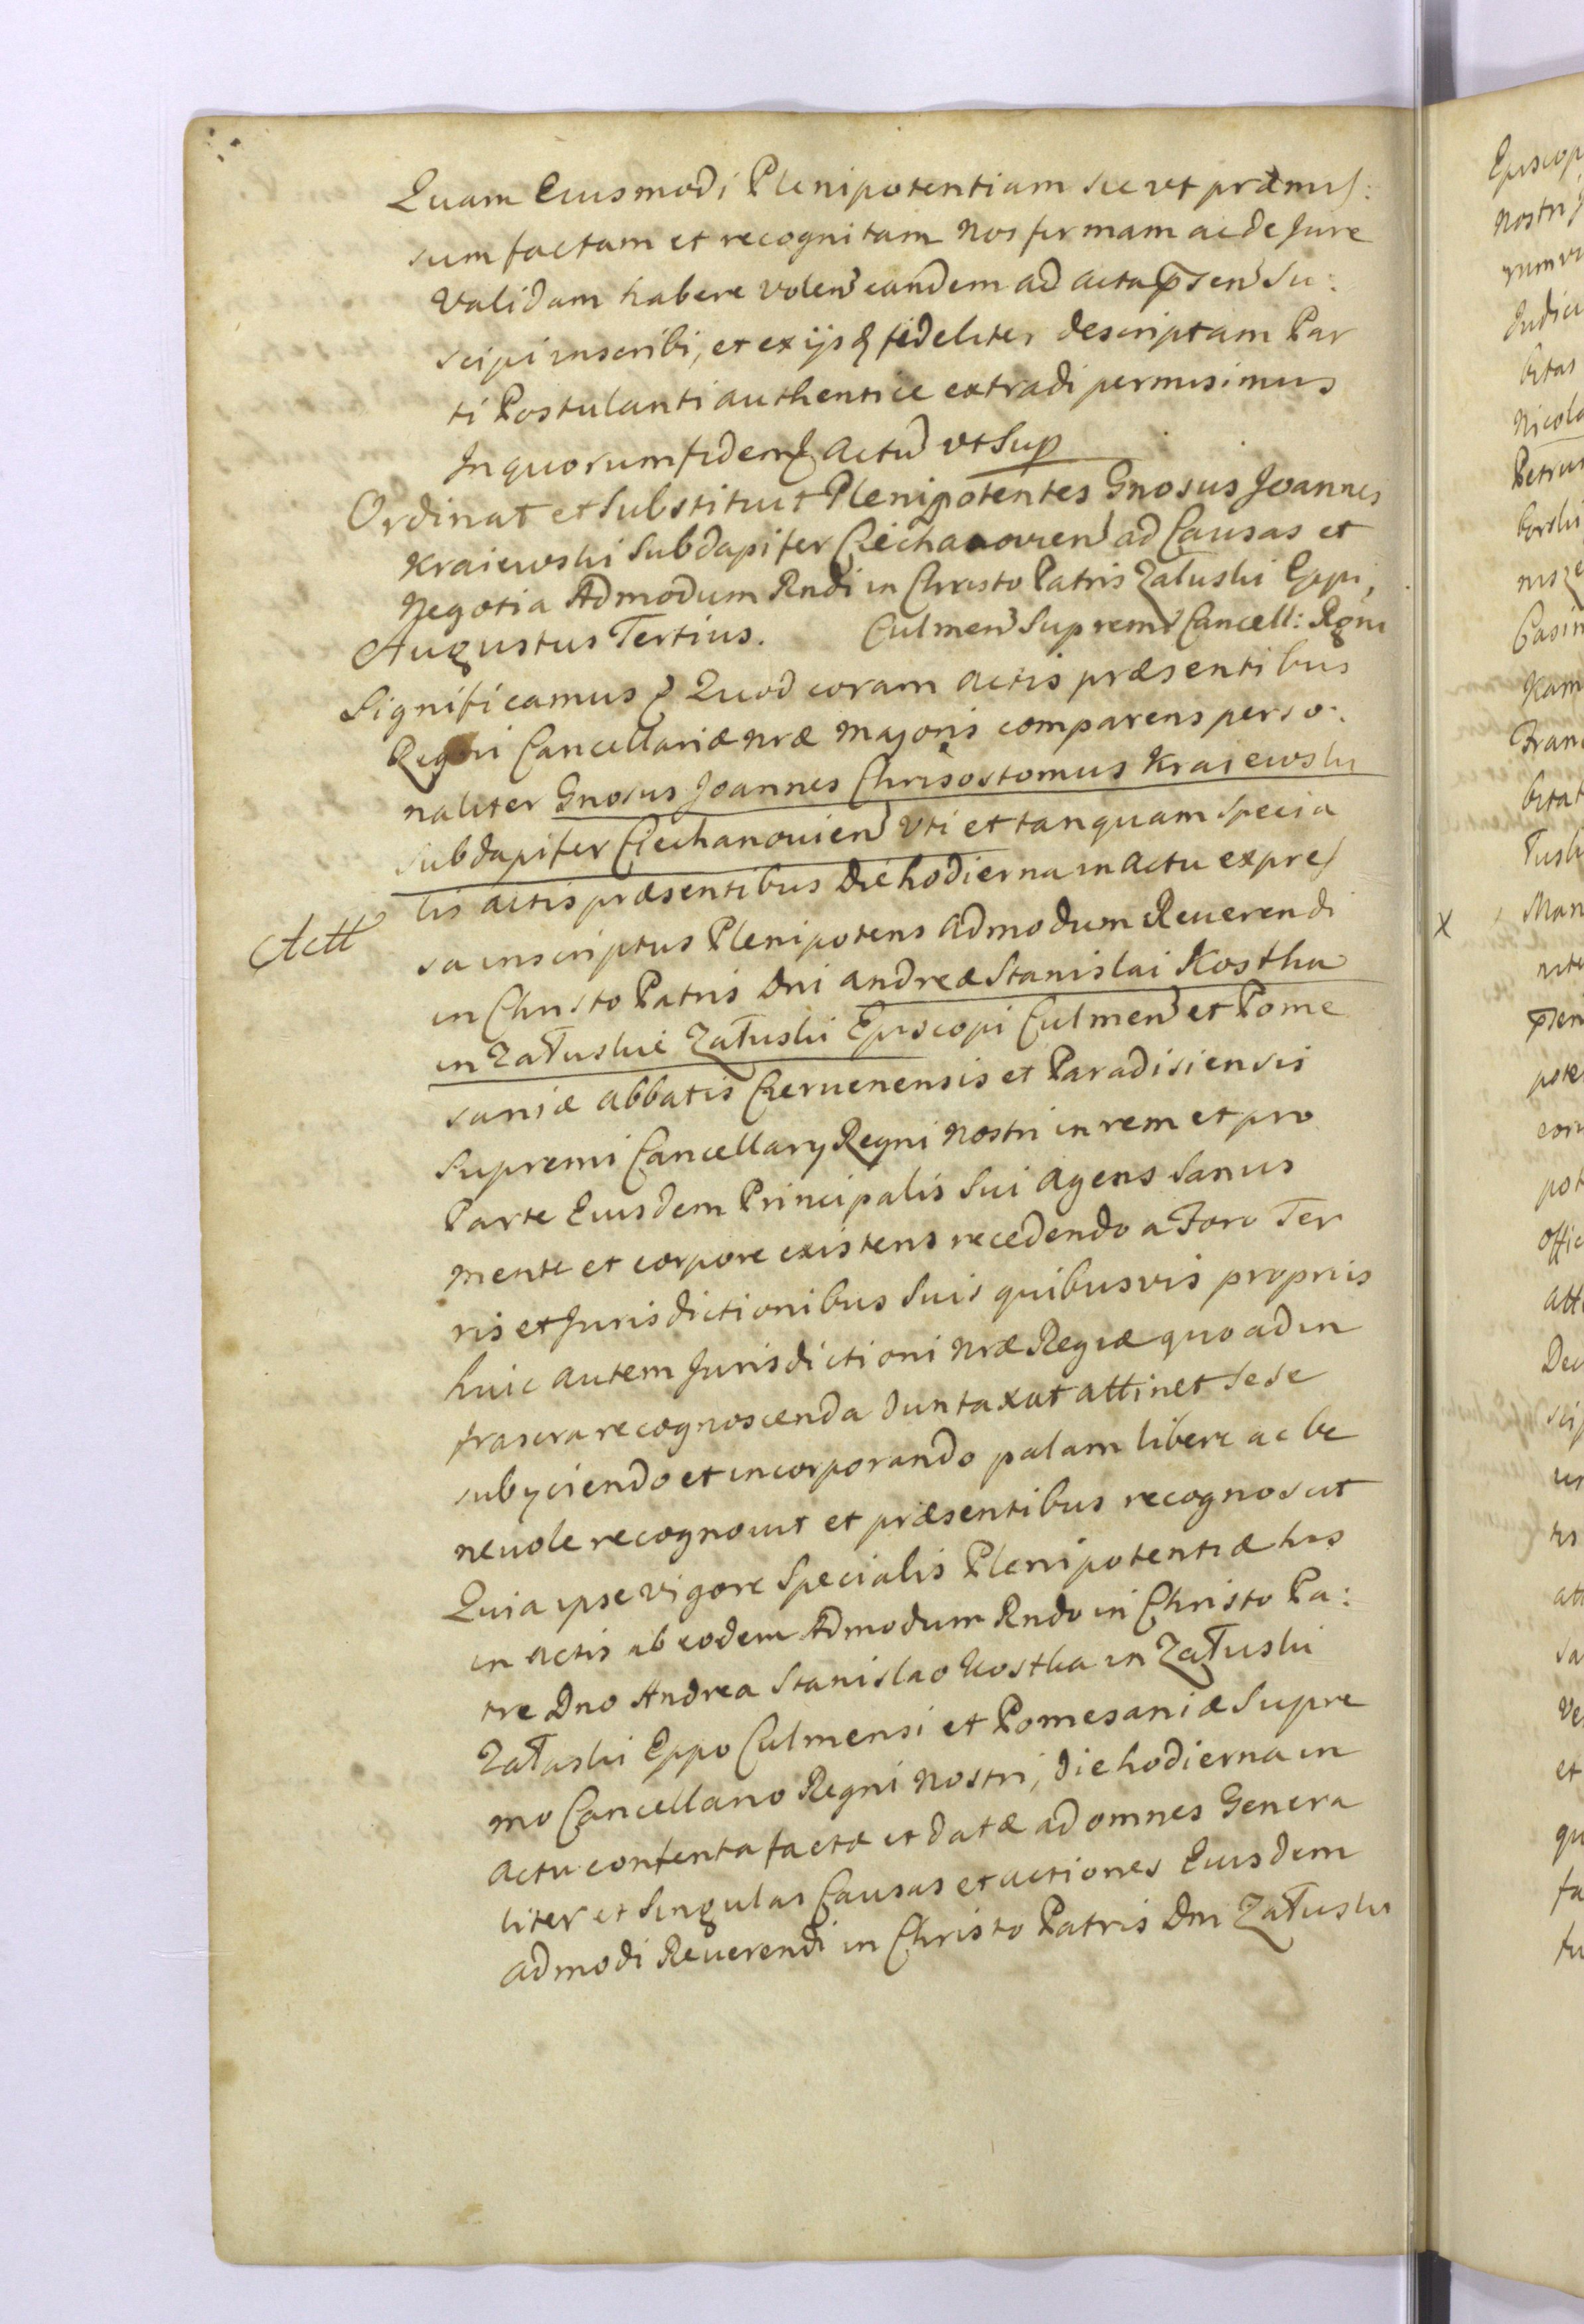 Quam Eiusmodi Plenipotentiam sic ut præmis:
sum factam et recognitam Nos firmam ac de Jure
Validam habere volen eandem ad acta pnsen Su:
scipi inscribi, et ex ijsq fideliter descriptam Par
ti Postulanti authentice extradi permisimus
In quorum fidem & Actu ut Sup
Ordinat et Substituit Plenipotentes Gnosus Joannes
Kraiewski Subdapifer Ciechanovien ad Causas et
Negotia Admodum Rndi in Christo Patris Załuski Eppi,
Augustus Tertius. Culmen Supremi Cancell: Rgni
Significamus & Quod coram actis præsentibus
Regni Cancellariæ nræ Majoris comparens perso:
naliter Gnosus Joannes Chrisostomus Kraiewski
Subdapifer Ciechanouien Uti et tanquam Specia
lis actis præsentibus Die hodierna in Actu expres
Actt
sa inscriptus Plenipotens Admodum Reuerendi
in Christo Patris Dni Andreæ Stanislai Kostka
in Załuskie Załuski Episcopi Culmen et Pome
saniæ Abbatis Czeruenensis et Paradisiensis
Supremi Cancellary Regni Nostri in rem et pro
Parte Eiusdem Principalis Sui Agens Sanus
mente et corpore existens recedendo a Foro Ter
ris et Jurisdictionibus Suis quibusvis proprijs
huic autem Jurisdictioni nræ Regiæ quo ad in
frascra recognoscenda duntaxat attinet Sese
subyciendo et incorporando palam libere ac be
neuole recognouit et præsentibus recognoscit
Quia ipse vigore Specialis Plenipotentiæ his
in Actis ab eodem Admodum Rndo in Christo Pa:
tre Dno Andrea Stanislao Kostka in Załuski
Załuski Eppo Culmensi et Pomesaniæ Supre
mo Cancellario Regni Nostri, die hodierna in
Actu contenta factæ et datæ ad omnes Genera
liter et Singulas Causas et actiones Eiusdem
admodi Reuerendi in Christo Patris Dni Załuski